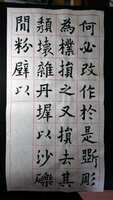 何必改作於是斲彫
為樸損之又損去其
頹壞雜丹墀以沙礫
間粉壁以